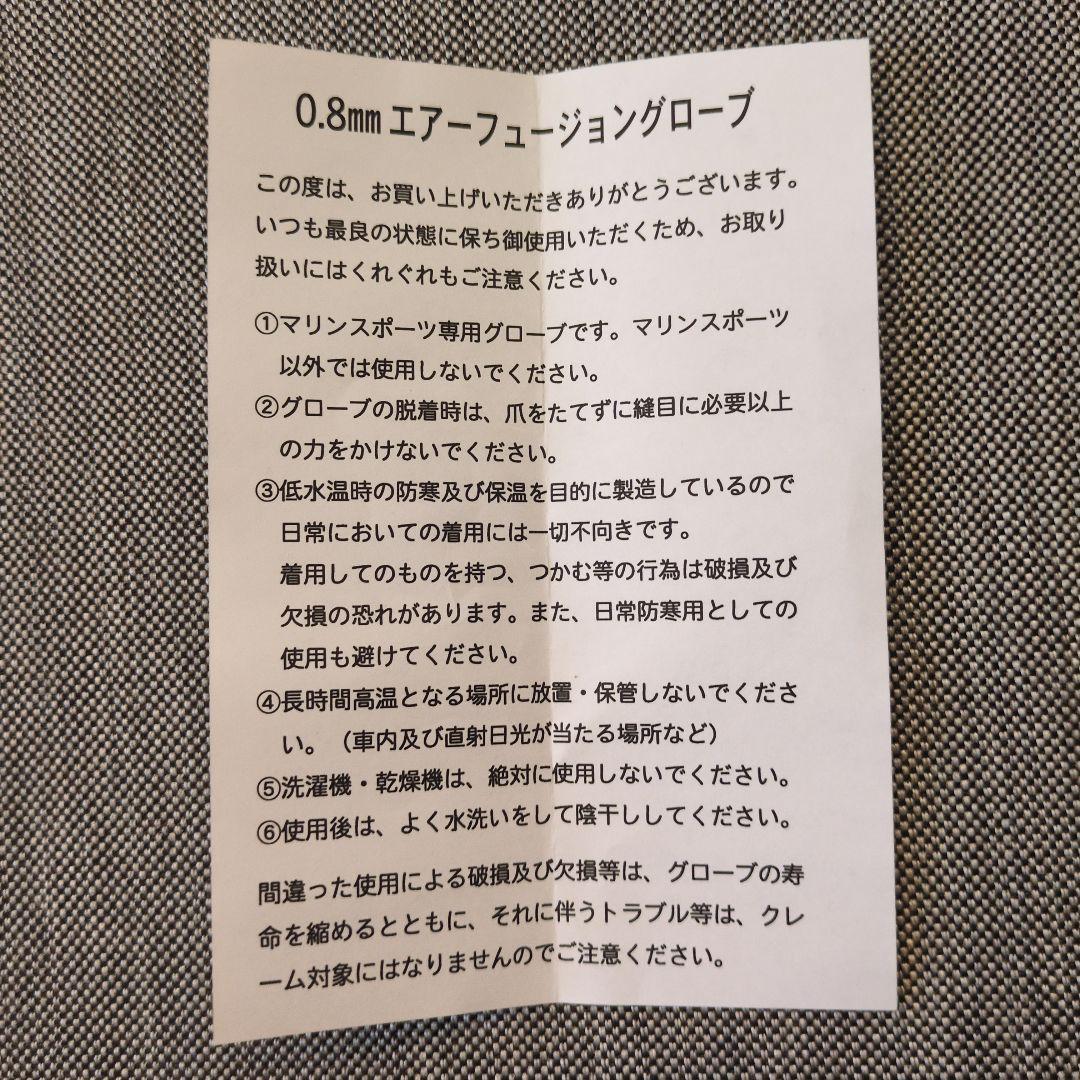 0.8mm エアーフュージョングローブ
この度は、お買い上げいただきありがとうございます。
いつも最良の状態に保ち御使用いただくため、お取り
扱いにはくれぐれもご注意ください。
①マリンスポーツ専用グローブです。マリンスポーツ
以外では使用しないでください。
②グローブの脱着時は、爪をたてずに縫目に必要以上
の力をかけないでください。
③低水温時の防寒及び保温を目的に製造しているので
日常においての着用には一切不向きです。
着用してのものを持つ、つかむ等の行為は破損及び
欠損の恐れがあります。また、日常防寒用としての
使用も避けてください。
④長時間高温となる場所に放置・保管しないでくださ
い。（車内及び直射日光が当たる場所など）
⑤洗濯機・乾燥機は、絶対に使用しないでください。
⑥使用後は、よく水洗いをして陰干ししてください。
間違った使用による破損及び欠損等は、グローブの寿
命を縮めるとともに、それに伴うトラブル等は、クレ
ーム対象にはなりませんのでご注意ください。